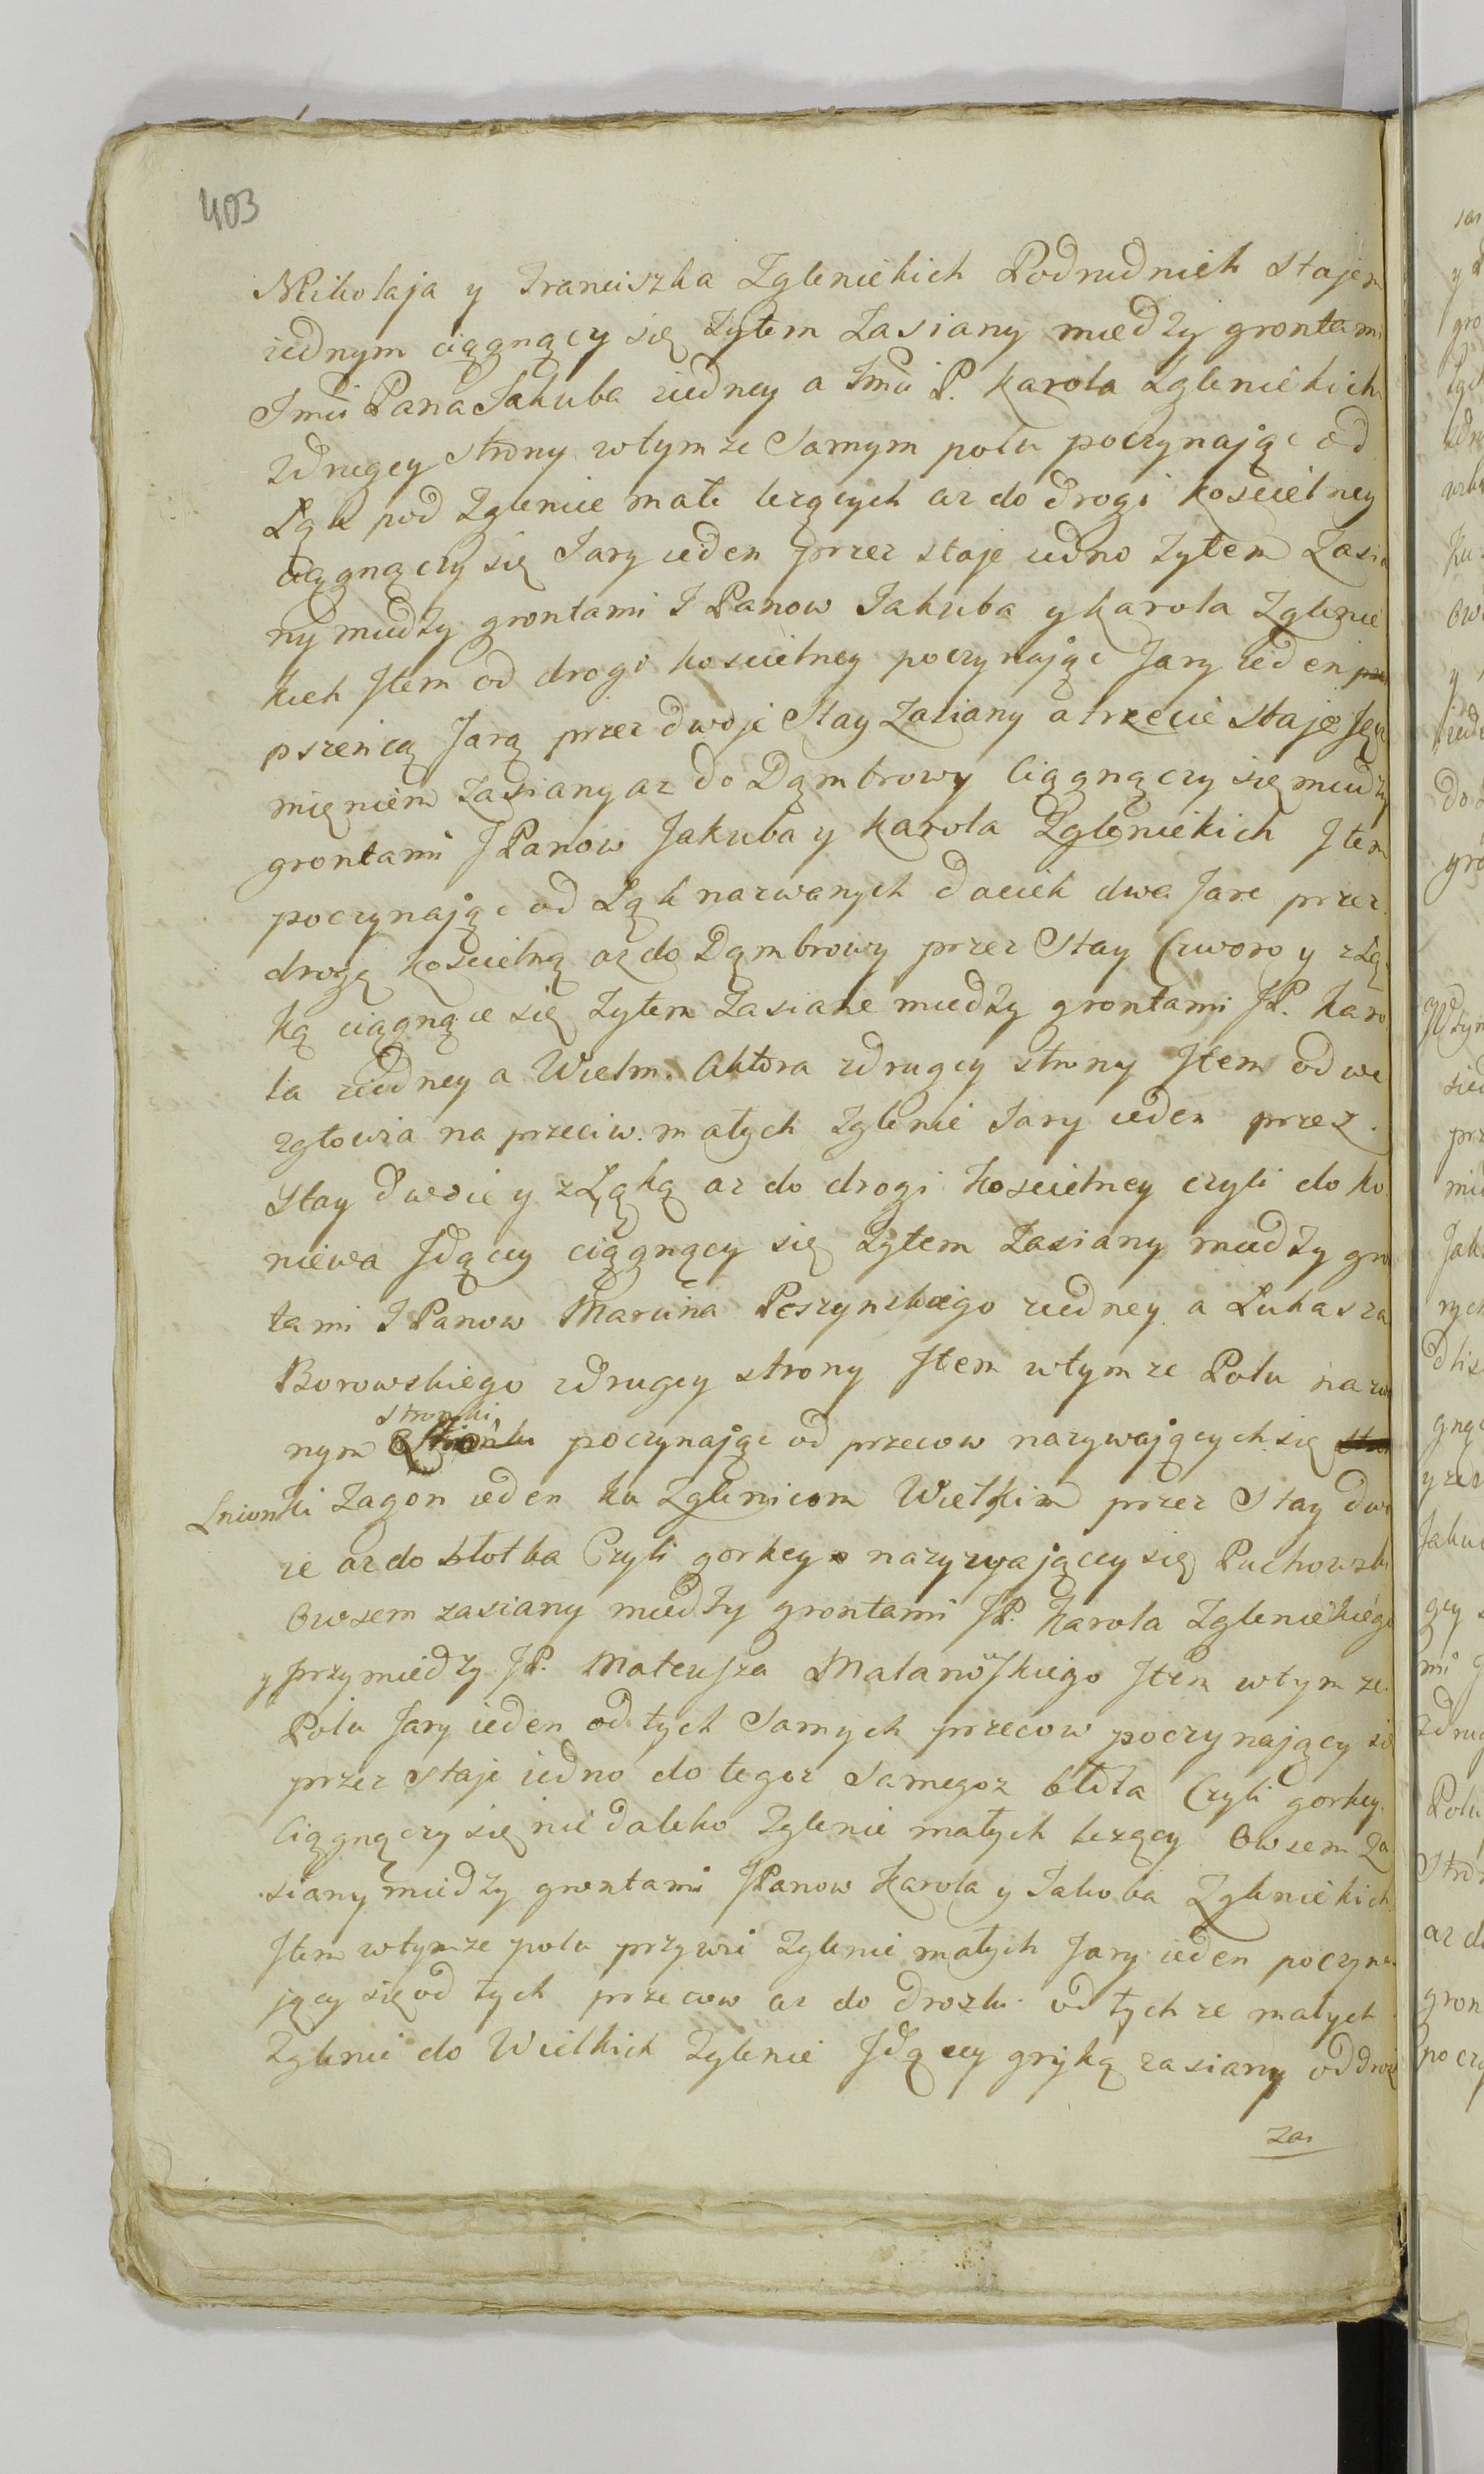 403
Mikołaja y Franciszka Zglenickich Podrudnick Stajem
iednym ciągnący się Zytem Zasiany miedzy grontami
Jmci Pana Jakuba ziedney a Jmci P. Karola Zglenickich
zdrugey strony wtymze Samym polu poczynając od
Łąk pod Zglenice małe lezących az do drogi Koscielney
ciągnączy się Jary ieden przez staje iedno Zytem Zasia
ny miedzy grontami J Panow Jakuba y Karola Zglenic
kich Jtem od drogi koscielney poczynając Jary ieden
pszenicą Jarą przez dwoje Stay Zasiany a trzecie Staje Jęcz
mięniem Zasiany az do Dąmbrowy Ciągnączy się miedzy
grontami J Panow Jakuba y Karola Zglenickich Jtem
poczynając od Łąk nazwanych daciek dwa Jare przez
drogę Koscielną az do Dąmbrowy przez Stay Czworo y z Łą
ką ciągnące się Zytem Zasiane miedzy grontami JP. Karo
la ziedney a Wielm. Aktora zdrugey strony Jtem od we
zgłowia na przeciw małych Zglenic Jary ieden przez
Stay dwoie y z Łąką az do drogi Koscielney czyli do Ko
niewa Jdącey ciągnący się Zytem Zasiany miedzy gro
tami J Panow Marcina Poszynskiego ziedney a Łukasza
Borowskiego zdrugey strony Jtem wtymze Polu nazwa
stronki
nym poczynając od przecow nazywających się
Lnionki Zagon ieden ku Zglenicom Wielkim przez Stay dwo
ie az do błotka Czyli gorkey nazywającey się Puchowski
Owsem zasiany miedzy grontami JP. Karola Zglenickiego
y przymiedzy JP. Mateusza Malanoskiego Jtem wtymze
Polu Jary ieden od tych Samych przecow poczynający się
przez Staje iedno do tegoz Samegoz błota Czyli gorkey
Ciągnączy się nie daleko Zglenic małych lezący Owsem Za
siany miedzy grontami J Panow Karola y Jakoba Zglenickich
Jtem wtymze polu przy wsi Zglenic małych Jary ieden poczyna
jący się od tych przecow az do drozki od tychze małych
Zglenic do Wielkich Zglenic Jdącey gryką zasiany od droz
za